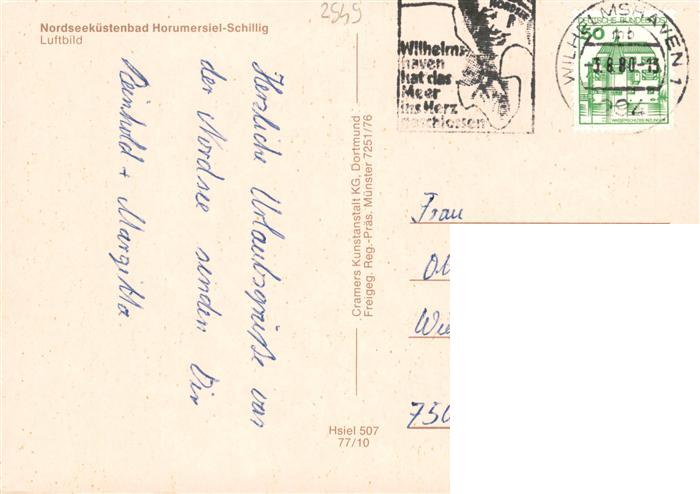 Nordseeküstenbad Horumersiel-Schillig
Luftbild
2949
Herzliche Urlaubsgrüße von
der Nordsee senden Dir
Reinhold + Margitta.
Cramers Kunstanstalt KG, Dortmund
Freigeg. Reg.-Präs. Münster 7251/76
Hsiel 507
77/10
Wilhelms-
haven
hat das
Meer
ins Herz
geschlossen
WILHELMSHAVEN 1
mb
-3.8.80-13
294
DEUTSCHE BUNDESPOST
50
Frau
Wie
750